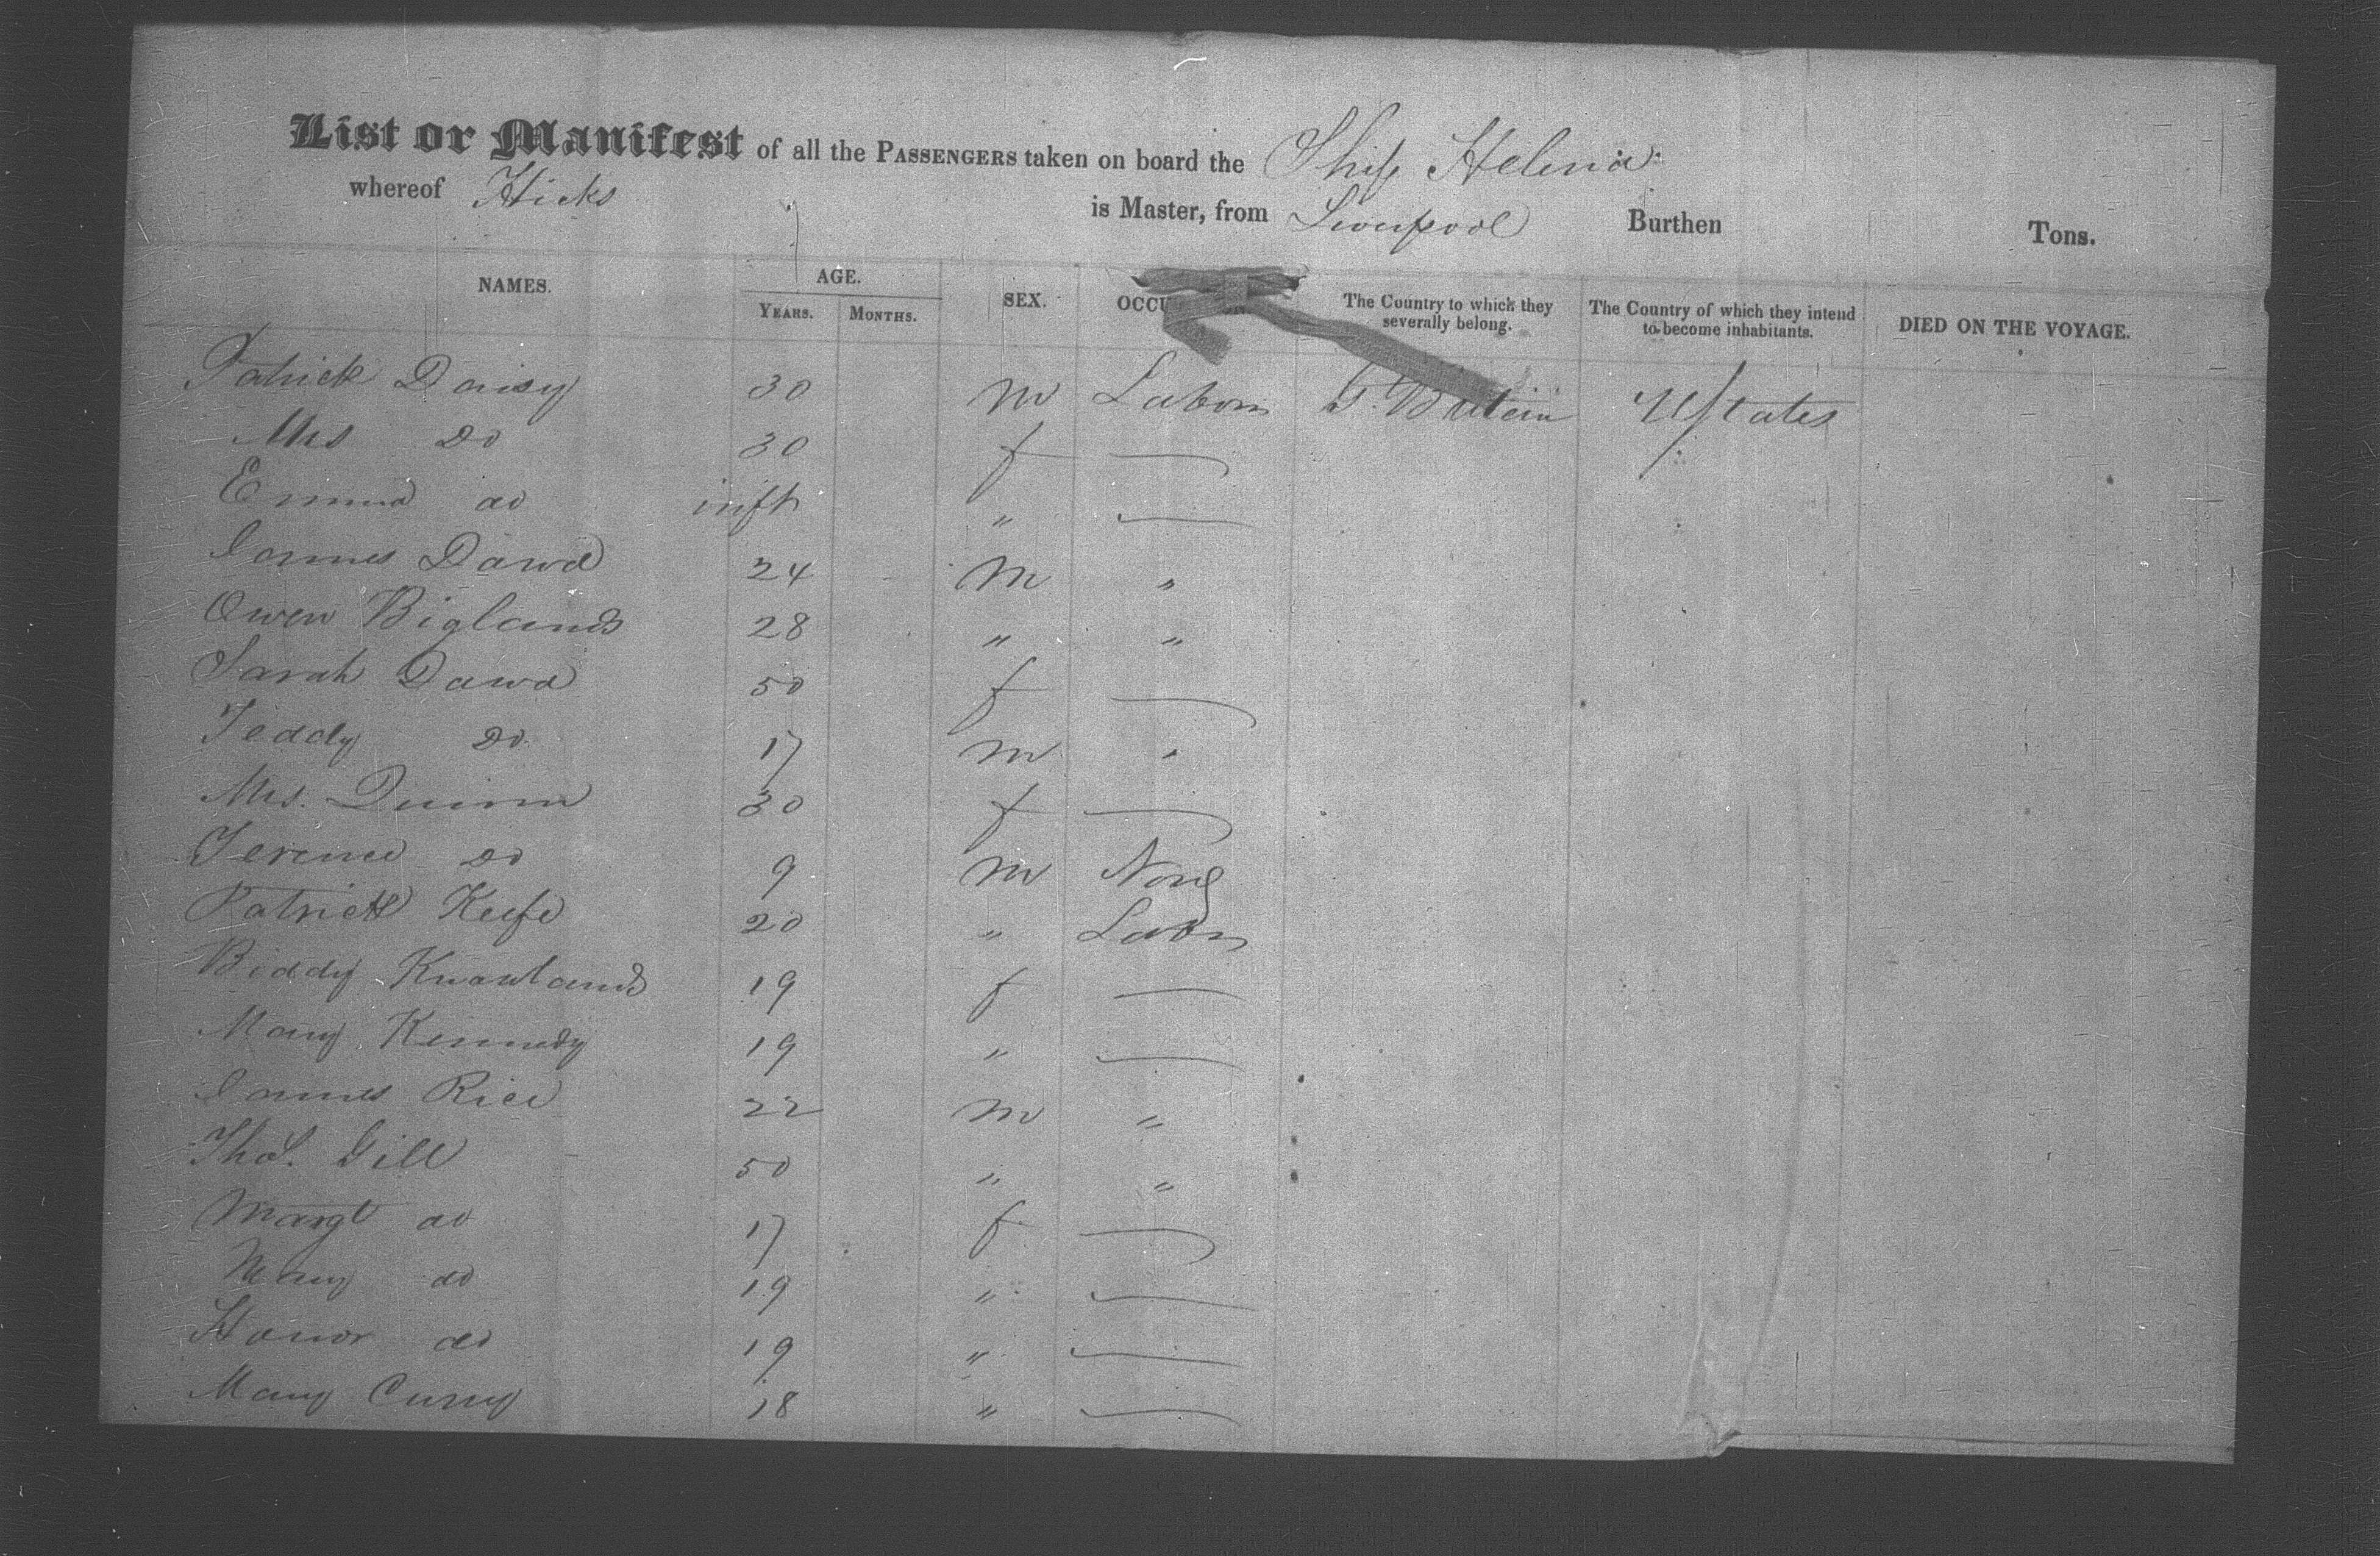 List or Manifest of all the PASSENGERS taken on board the Ship Helena
whereof Hicks is Master, from Liverpool Burthen Tons.
NAMES. AGE. SEX. OCCU The Country to which they severally belong. The Country of which they intend to become inhabitants. DIED ON THE VOYAGE.
YEARS. MONTHS.
Patrick Daisy 30 m Laborr G. Britain UStates
Mrs Do 30 f —
Emma do inft " —
James Dawd 24 m "
Owen Biglands 28 " "
Sarah Dawd 50 f —
Teddy Do 17 m "
Mrs. Quinn 30 f —
Terence Do 9 m None
Patrick Keefe 20 " Labr
Biddy Knowlands 19 f —
Mary Kennedy 19 " —
James Rice 22 m "
Thos. Gill 50 " "
Margt do 17 f —
Mary do 19 " —
Honor do 19 " —
Mary Curry 18 " —